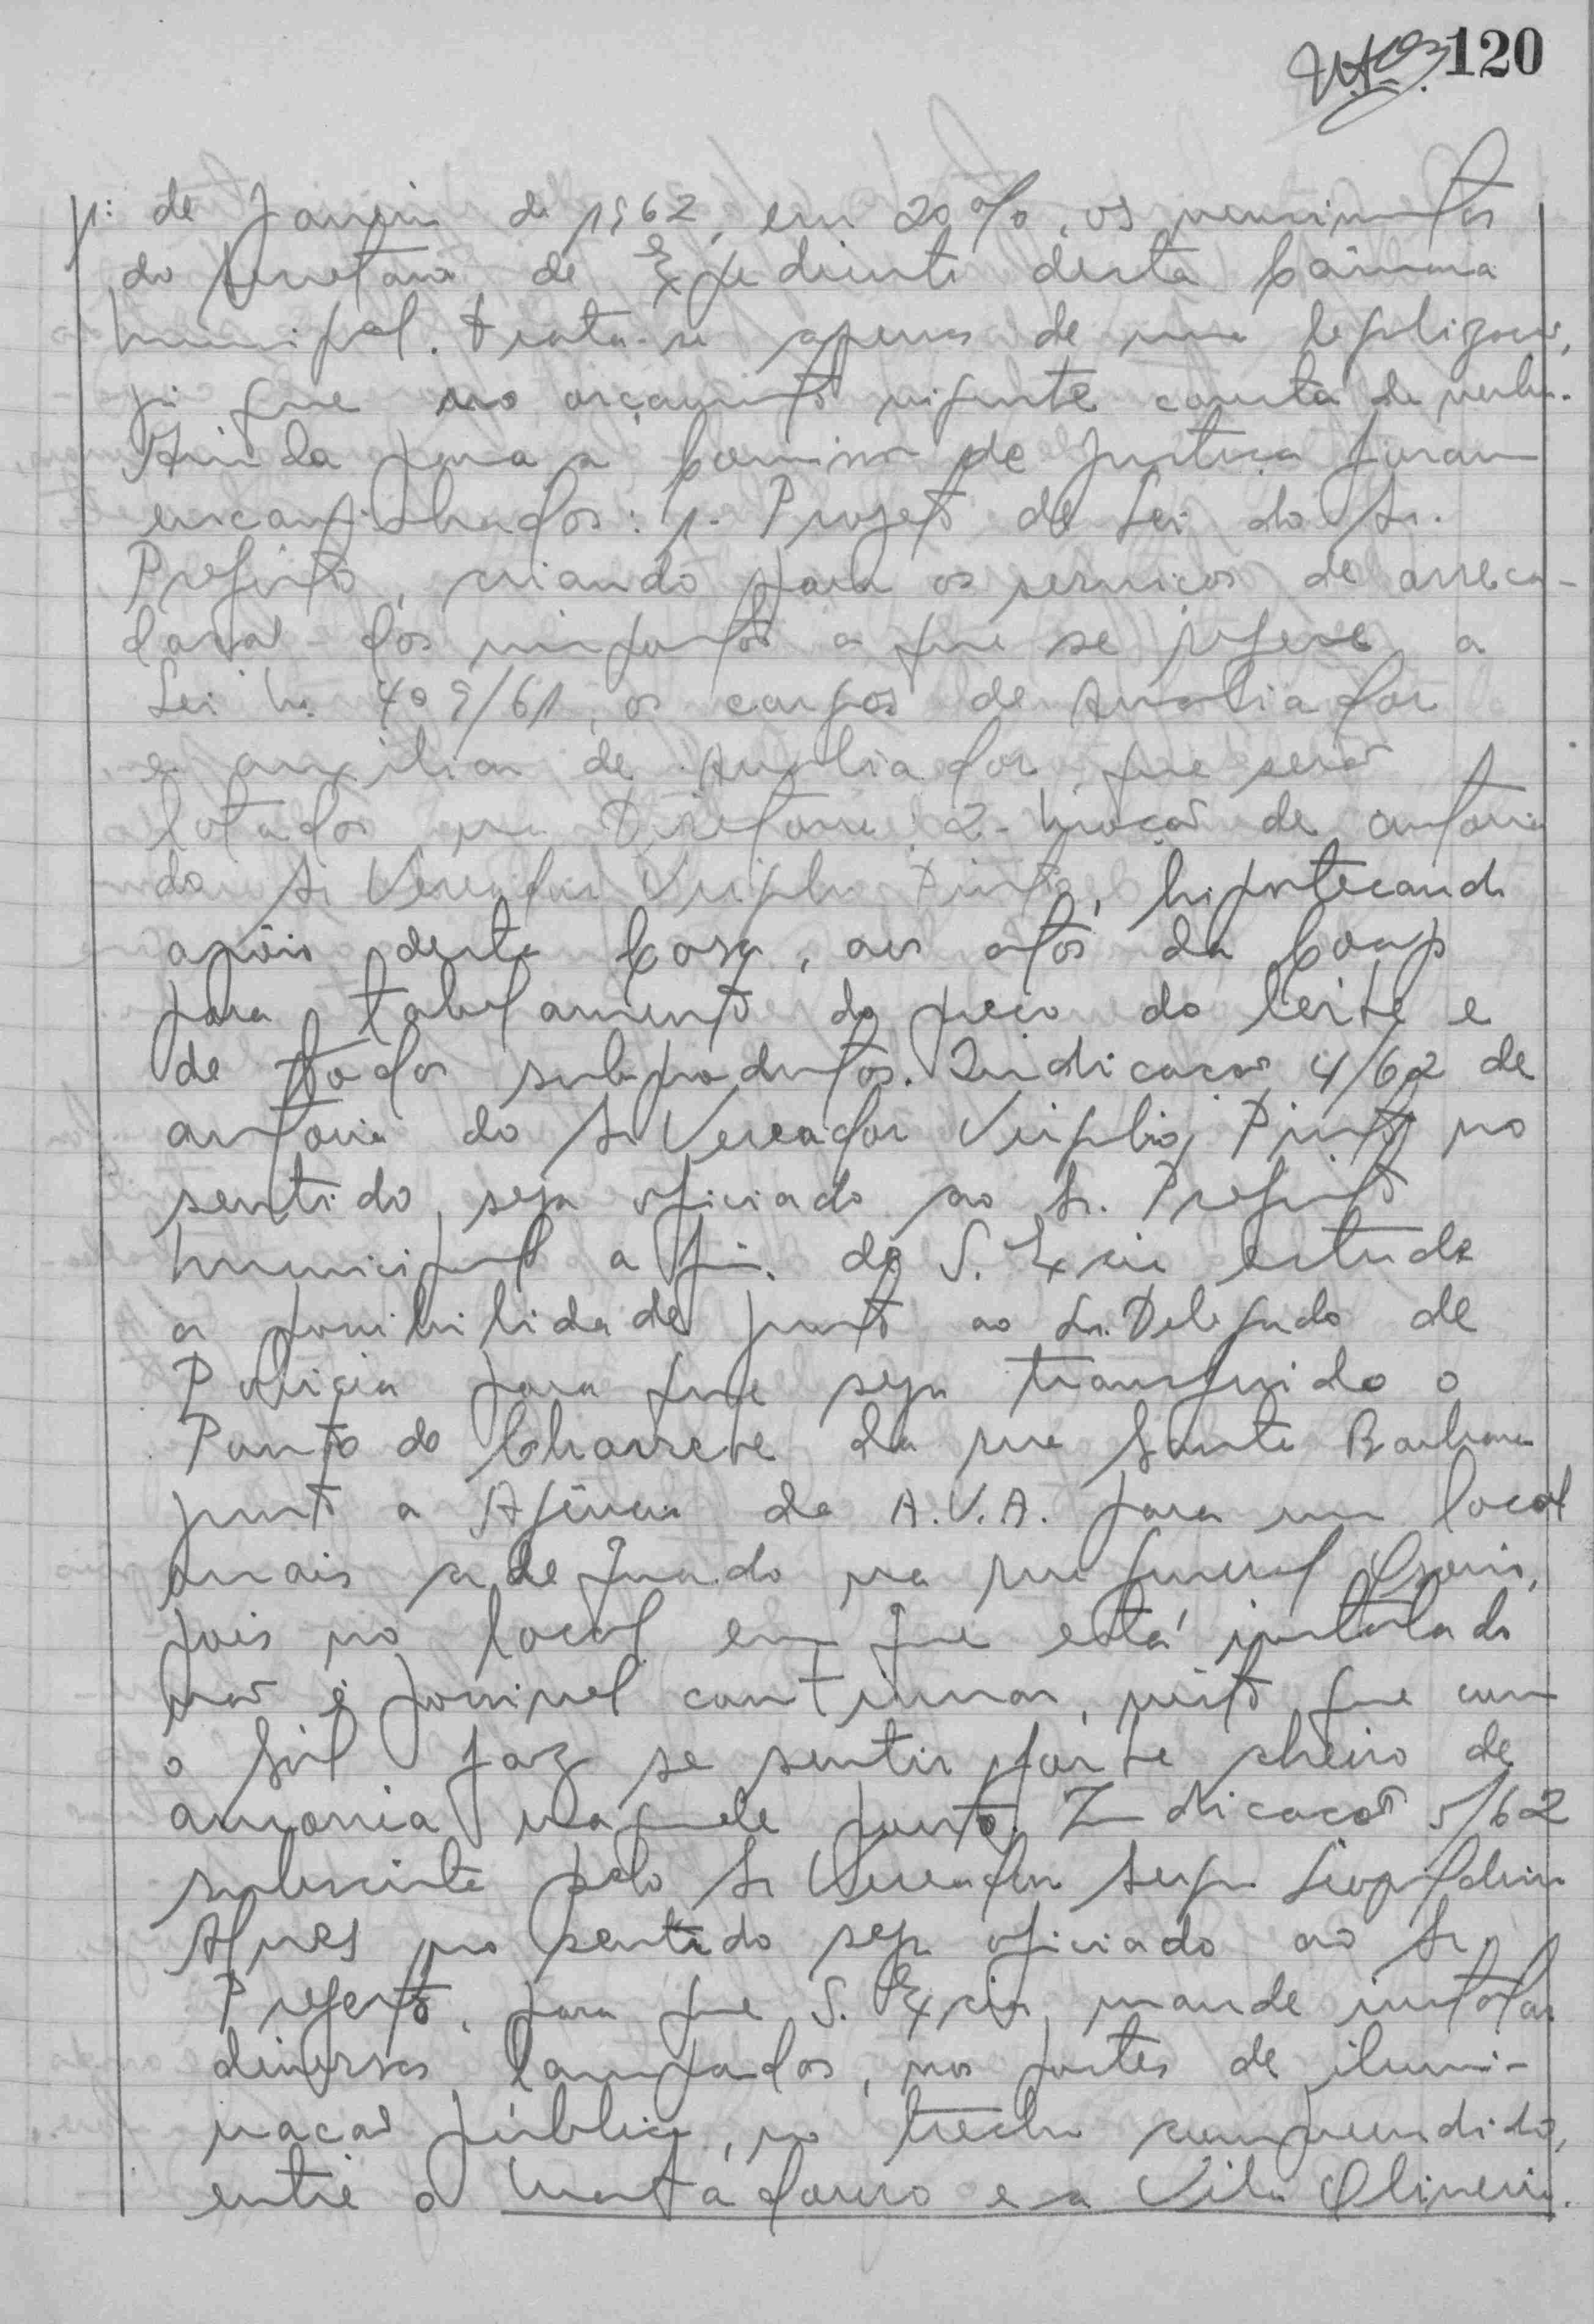 120
1º de Janeiro de 1962, em 20%, os vencimentos
do Secretario de Expediente desta Câmara
Municipal. Trata-se apenas de uma legalização,
já que no orçamento vigente consta da verba.
Ainda para a Comissão de Justiça foram
encaminhados: 1- Projeto de Lei do Sr.
Prefeito, criando para os serviços de arreca-
dação dos impostos a que se refere a
Lei n. 409/61, os cargos de Avaliador
e auxiliar de Avaliador que serão
lotados na Diretoria; 2- Moção de autoria
do Sr Vereador Virgilio Pinto, hipotecando
apôio desta Casa, aos atos da Coap
para tabelamento do preço do leite e
de todos subprodutos. Indicação 4/62 de
autoria do Sr Vereador Virgilio Pinto no
sentido seja oficiado ao Sr. Prefeito
Municipal a fim de S. Excia estude
a possibilidade junto ao Sr. Delegado de
Policia para que seja transferido o
Ponto de Charrete da rua Santa Barbara
junto a Agência da A.V.A. para um local
mais adequado na rua General Osorio,
pois no local em que está instalado
não é possivel continuar, visto que com
o Sol faz se sentir forte cheiro de
amonia naquele ponto. Indicação 5/62
subscrita pelo Sr Vereador Sergio Leopoldino
Alves no sentido seja oficiado ao Sr.
Prefeito, para que S. Excia, mande instalar
diversas lampadas, nos postes de ilumi-
nação pública, no trecho compreendido,
entre o Matadouro e a Vila Oliveira.